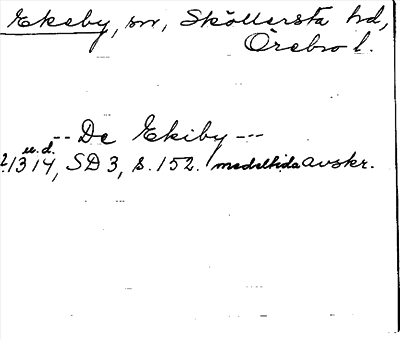 Ekeby, sn, Sköllersta hd,
Örebro l.
-- De Ekiby ---
u.d.
1314, SD 3, s. 152. medeltida avskr.